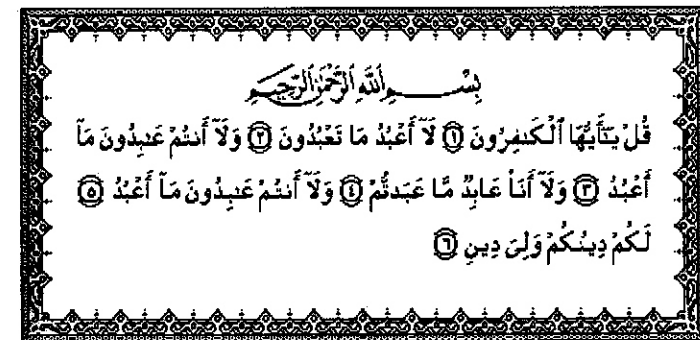 بِسْمِ ٱللَّهِ ٱلرَّحْمَٰنِ ٱلرَّحِيمِ
قُلْ يَـٰٓأَيُّهَا ٱلْكَـٰفِرُونَ ١ لَآ أَعْبُدُ مَا تَعْبُدُونَ ٢ وَلَآ أَنتُمْ عَـٰبِدُونَ مَآ
أَعْبُدُ ٣ وَلَآ أَنَا۠ عَابِدٌ مَّا عَبَدتُّمْ ٤ وَلَآ أَنتُمْ عَـٰبِدُونَ مَآ أَعْبُدُ ٥
لَكُمْ دِينُكُمْ وَلِىَ دِينِ ٦